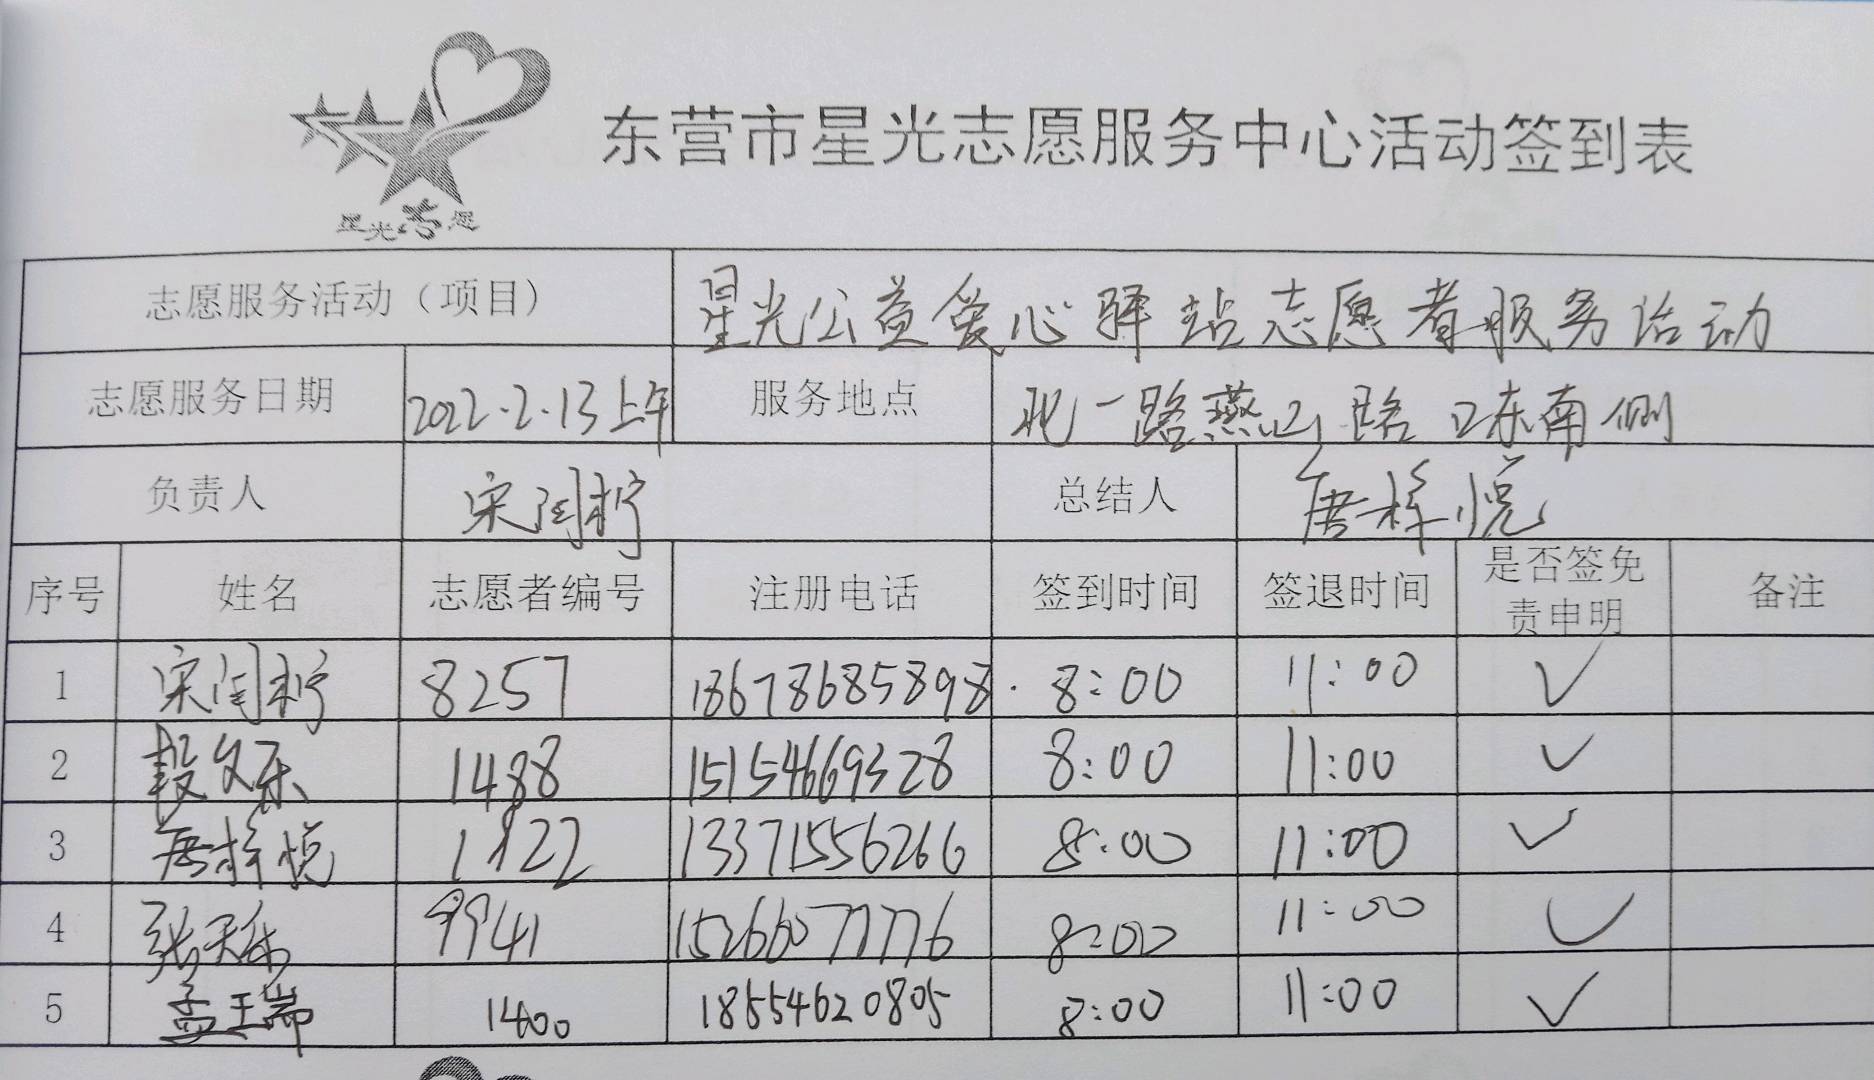 东营市星光志愿服务中心活动签到表
星光志愿
志愿服务活动（项目） 星光公益爱心驿站志愿者服务活动
志愿服务日期 2022.2.13上午 服务地点 北一路燕山路口东南侧
负责人 宋闰柠 总结人 唐梓悦
序号 姓名 志愿者编号 注册电话 签到时间 签退时间 是否签免责申明 备注
1 宋闰柠 8257 18678685898 8:00 11:00 ✓
2 段文乐 1488 15154669328 8:00 11:00 ✓
3 唐梓悦 1822 13371556266 8:00 11:00 ✓
4 张天 9941 15266077776 8:00 11:00 ✓
5 孟王瑞 1400 18554620805 8:00 11:00 ✓